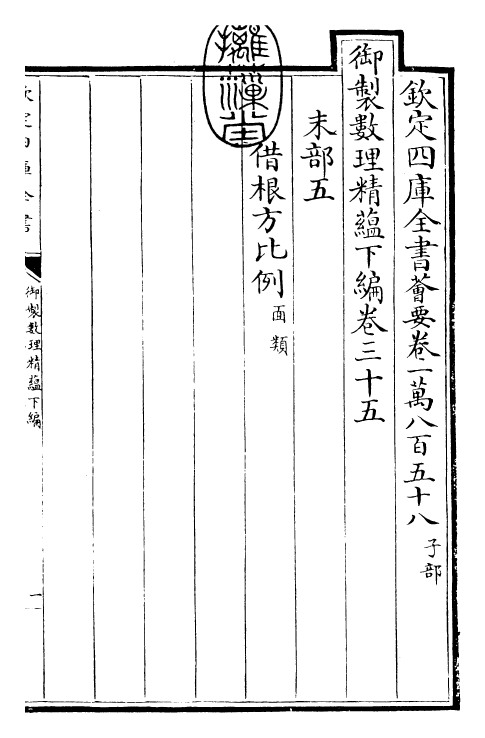 欽定四庫全書薈要卷一萬八百五十八 子部
御製數理精蘊下編卷三十五
末部五
借根方比例 面類
摛藻堂
欽定四庫全書
御製數理精蘊下編
一